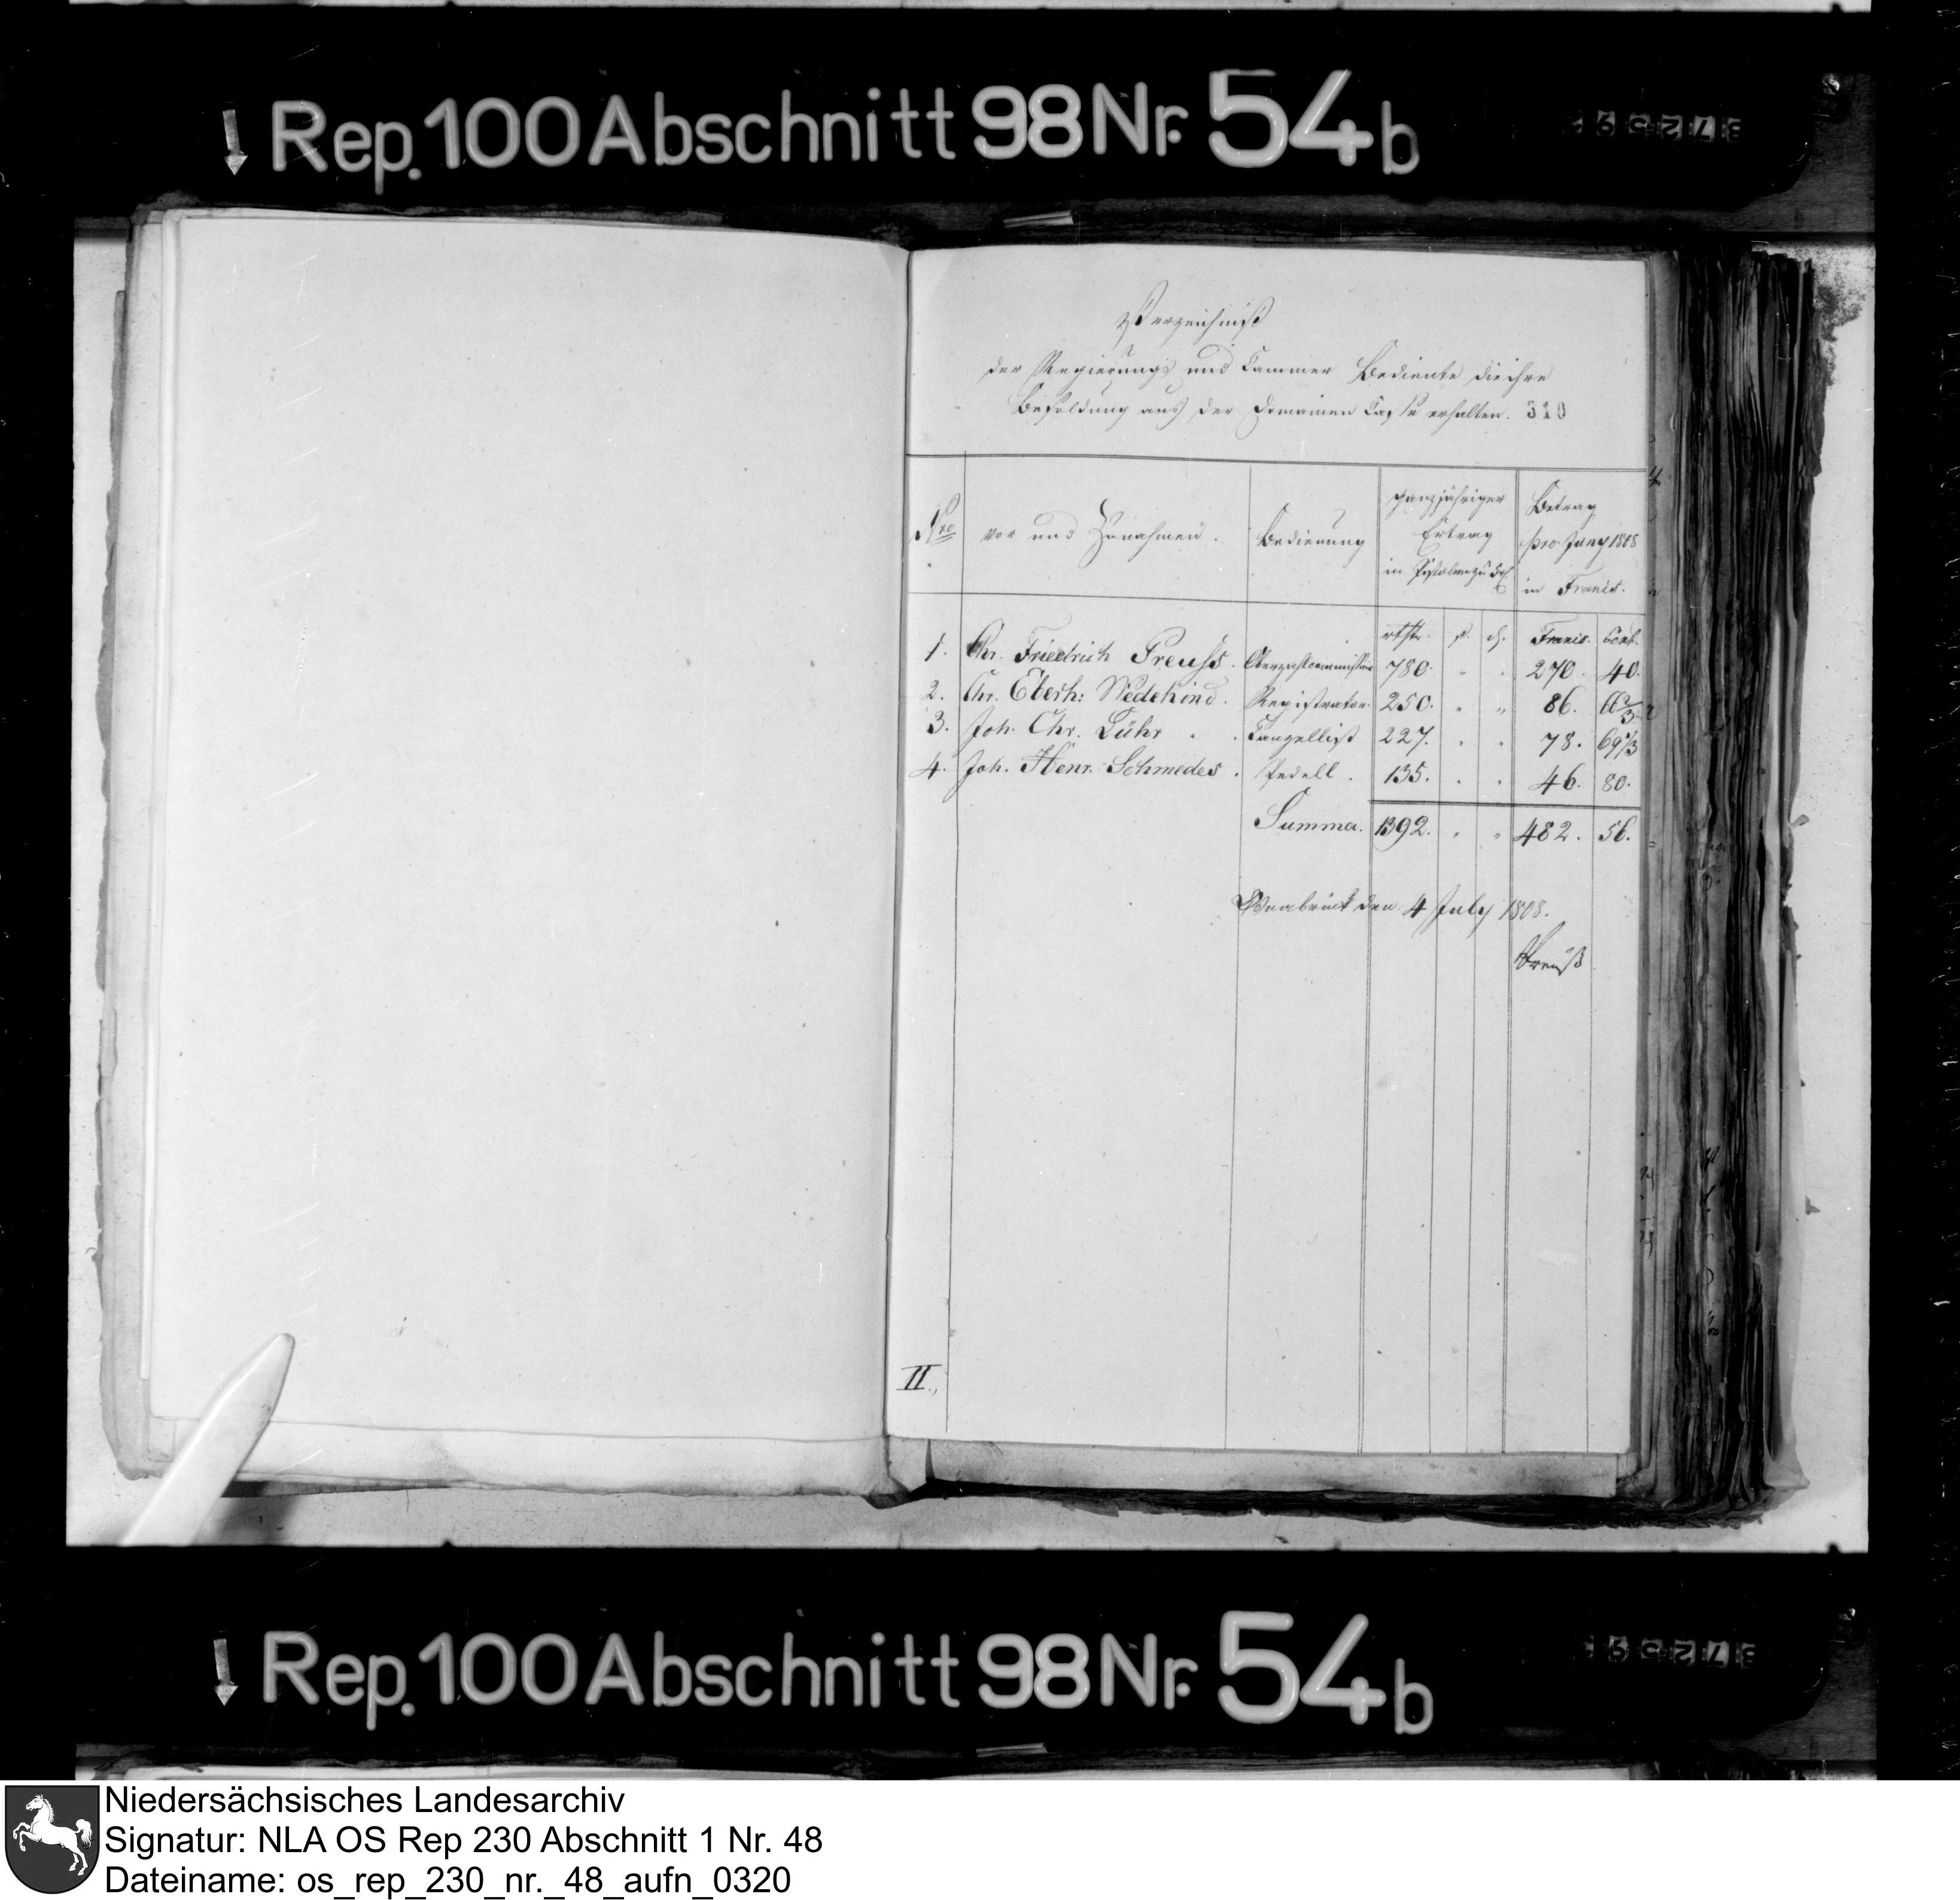 Rep. 100 Abschnitt 98 Nr. 54 b
37259
Verzeichniß
der Regierungs und Cammer Bediente die ihre
Besoldung aus der Domainen Casse erhalten. 310
Nro vor und Zunahmen. Bedienung ganzjähriger Ertrag in Pistolen zu Betrag pro Juny 1808 in Francs.
rthlr. ß. d. Francs. Cent.
1. Chr. Friedrich Preuss. Oberzahlcommissair 780. " " 270. 40.
2. Chr. Eberh: Wedekind. Registrator. 250. " " 86. 66 2/3
3. Joh. Chr. Lühr Canzellist 227. " " 78. 69 1/3
4. Joh. Henr. Schmedes. Pedell. 135. " " 46. 80.
Summa. 1392. " " 482. 56.
Osnabrück den 4 July 1808.
Preuß
II.
Rep. 100 Abschnitt 98 Nr. 54 b
37259
Niedersächsisches Landesarchiv
Signatur: NLA OS Rep 230 Abschnitt 1 Nr. 48
Dateiname: os_rep_230_nr._48_aufn_0320